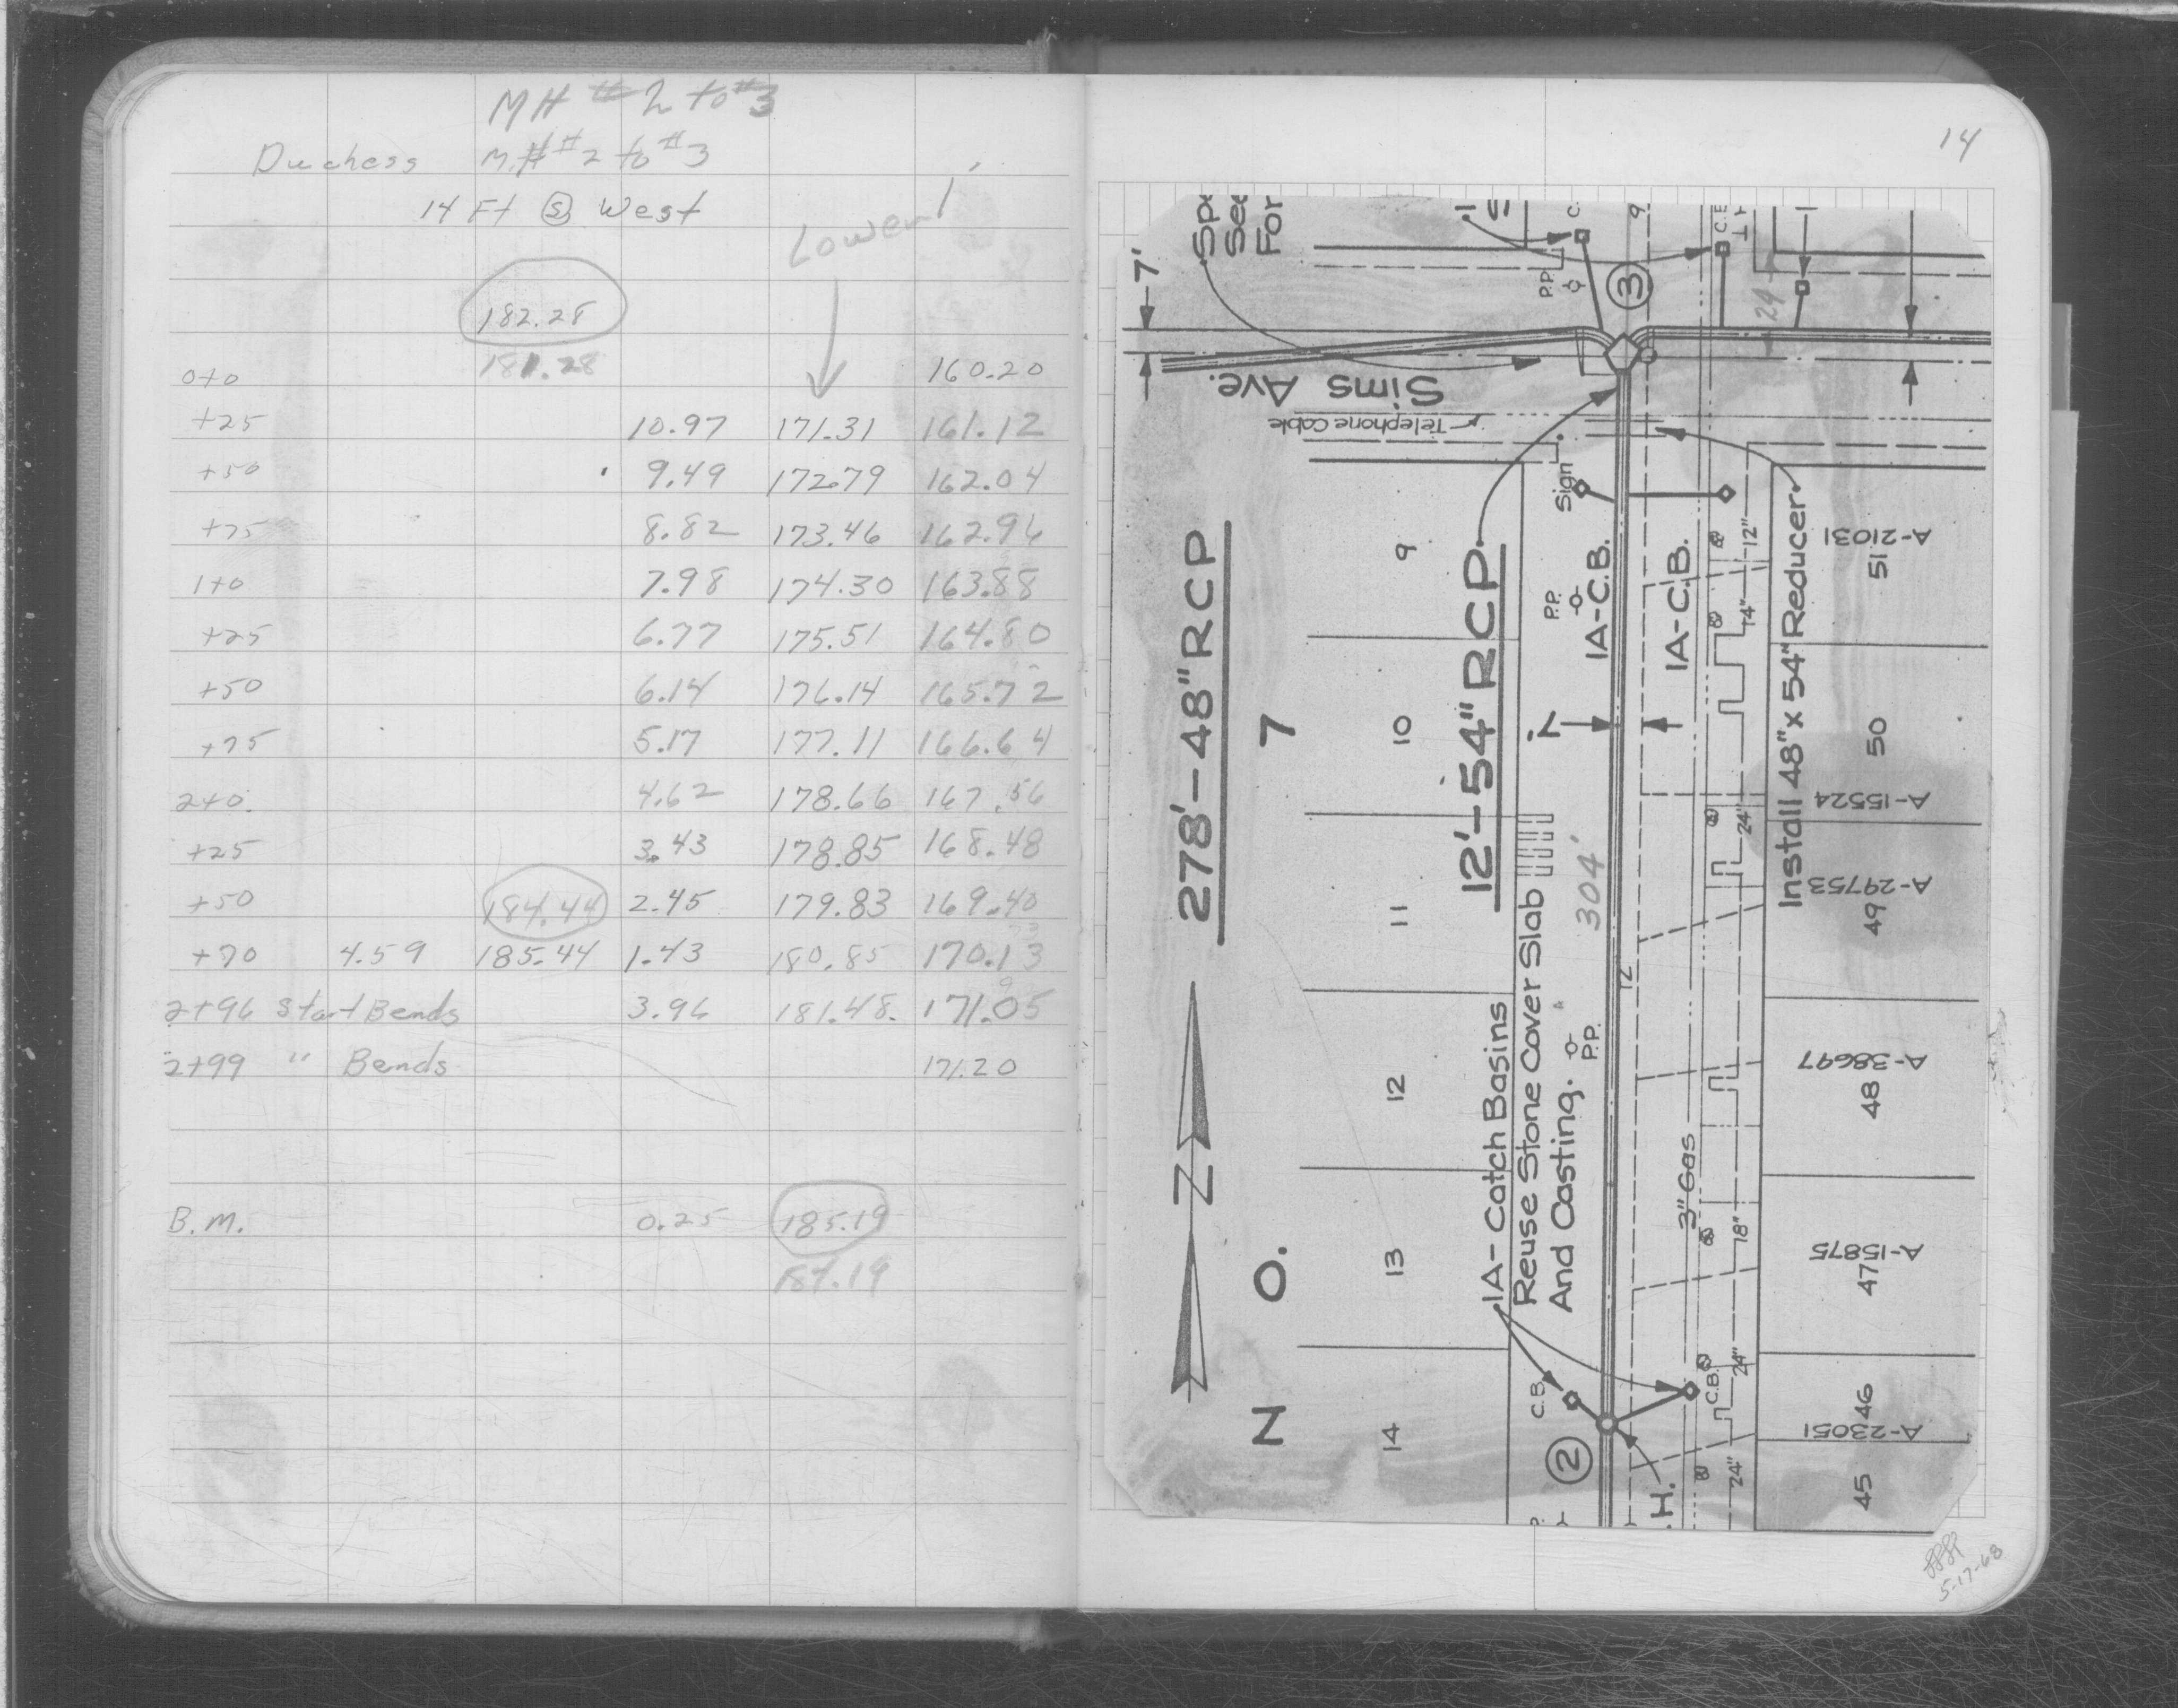 MH #2 to #3
Duchess M.H #2 to #3
14 Ft Ⓢ West
Lower 1'
182.28
181.28
0+0 160.20
+25 10.97 171.31 161.12
+50 9.49 172.79 162.04
+75 8.82 173.46 162.96
1+0 7.98 174.30 163.88
+25 6.77 175.51 164.80
+50 6.14 176.14 165.72
+75 5.17 177.11 166.64
2+0 4.62 178.66 167.56
+25 3.43 178.85 168.48
+50 184.44 2.45 179.83 169.40
+70 4.59 185.44 1.43 180.85 170.13
2+96 Start Bends 3.96 181.48 171.05
2+99 " Bends 171.20
B.M. 0.25 185.19
184.19
14
7'
Spe
See
For
C.
9
C.B
P.P.
3
24
Sims Ave.
Telephone Cable
Sign
278'-48" RCP
12'-54" RCP
P.P.
1A-C.B.
1A-C.B.
12"
14"
Install 48"x 54" Reducer
A-21031
51
9
7
10
7'
50
A-15524
24"
304'
A-29753
49
11
12
1A- Catch Basins
Reuse Stone Cover Slab
And Casting.
P.P.
A-38697
48
12
3" Gas
18"
A-15875
47
13
O.
N
Z
C.B.
C.B.
24"
46
A-23051
14
2
.H.
24"
45
5-17-68